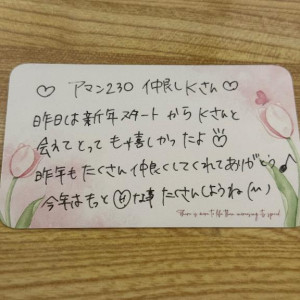 ♡ アマン230 仲良しKさん ♡
昨日は新年スタートからKさんと
会えてとっても喜しかったよ
昨年もたくさん仲良くしてくれてありがとう♪
今年はもっと な事たくさんしようね(m)
There is more to life than increasing its speed